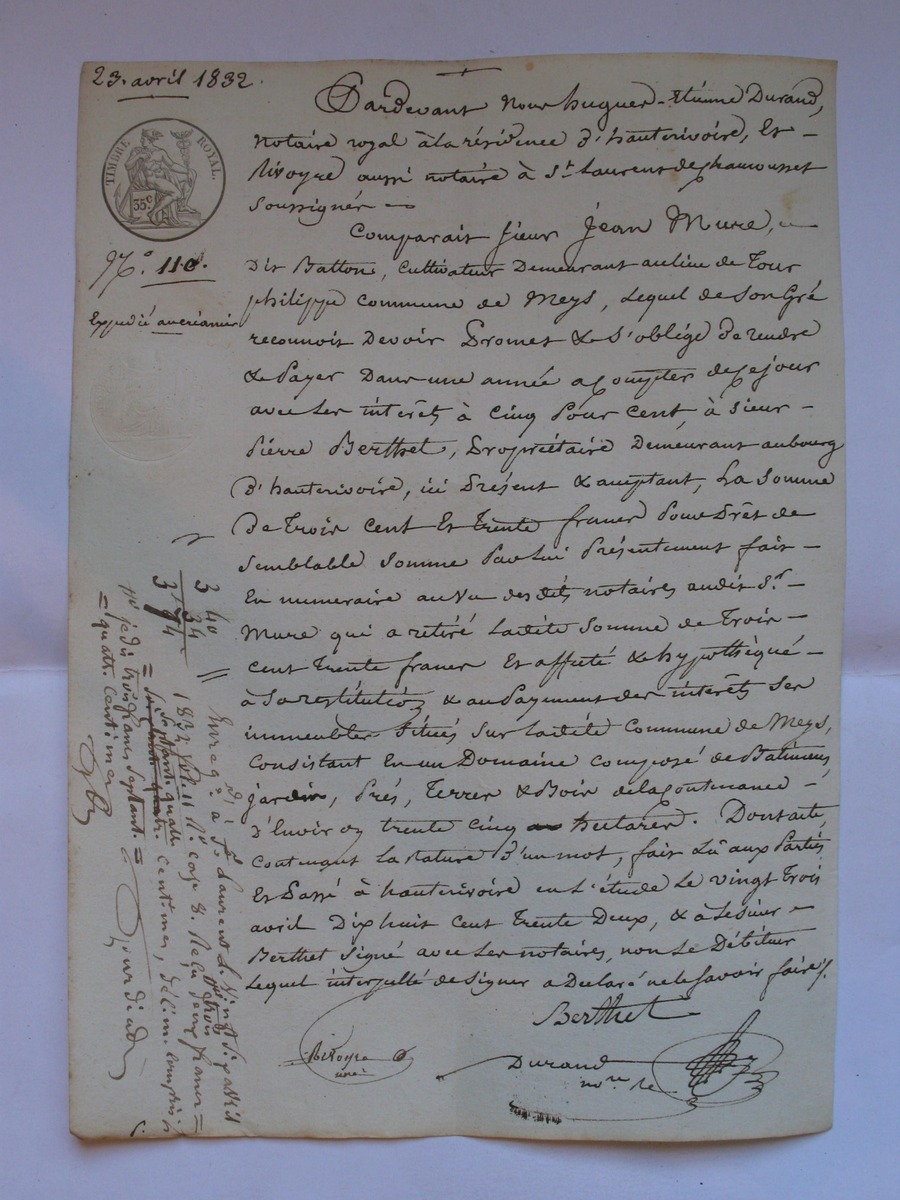 23. avril 1832.
TIMBRE ROYAL.
35 c
N.° 110.
Expédié au créancier
Pardevant Nous hugues-Etienne Durand,
Notaire royal à la résidence d'hauterivoire, Et
Rivoyre aussi notaire à St. Laurent de chamousset
Soussignés
Comparait Sieur Jean Mure,
Dit Batton, cultivateur Demeurant au lieu de Tour
philippe commune de Meys, Lequel de Son Gré
reconnoit Devoir Promet & S'oblige De rendre
& Payer Dans une année a Compter de ce jour
avec Les intérêts à Cinq Pour Cent, à Sieur
Pierre Berthet, Propriétaire Demeurant au bourg
D'hauterivoire, ici Présent & acceptant, La Somme
De Trois Cent Et Trente francs Pour Prêt de
Semblable Somme Par Lui Présentement fait
En numeraire au Vu des dits notaires audit Sr.
Mure qui a retiré Ladite Somme de Trois
cent Trente francs Et affecté & hypothèqué
à Sa restitution & au Payement des intérêts Ses
immeubles Situés Sur Ladite Commune de Meys,
Consistant En un Domaine Composé de Batimens,
jardin, Prés, Terres & Bois de la Contenance
D'Environ trente cinq hectares. Dont acte,
contenant La rature D'un mot, fait Lû aux Parties
Et Passé à hauterivoire en L'étude Le vingt Trois
avril Dix huit cent Trente Deux, & a Le Sieur
Berthet Signé avec Les notaires, non Le Débiteur
Lequel interpellé de Signer a Déclaré ne le Savoir faire
Berthet
Rivoyre
Durand
nore
3 40
34
3 74
Enregé. à St. Laurent L. Vingt Six avril
1832 fol. 11 Ro. case 8. Reçu
centimes, décime compris
je dis trois francs Septante
quatre Centimes